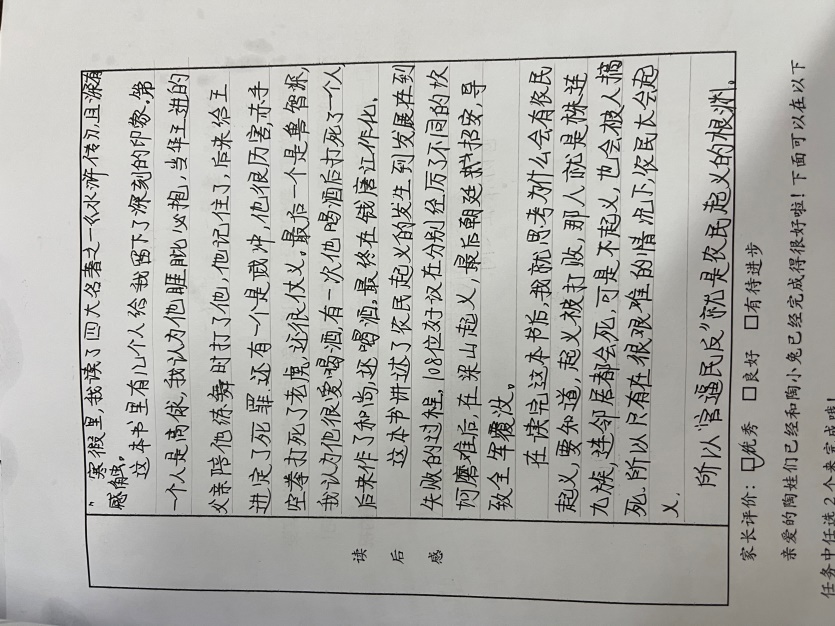 寒假里,我读了四大名著之一《水浒传》,且深有
感触。
这本书里有几个人给我留下了深刻的印象。第
一个人是高俅,我认为他睚眦必抱,当年王进的
父亲陪他练舞时打了他,他记住了,后来给王
进定了死罪。还有一个是武冲,他很历害,赤手
空拳打死了老虎,还很仗义。最后一个是鲁智深,
我认为他很爱喝酒,有一次他喝酒后打死了一个人
后来作了和尚,还喝酒,最终在钱唐江作化。
这本书讲述了农民起义的发生到发展在到
失败的过程,108位好议在分别经历了不同的坎
坷磨难后,在梁山起义,最后朝廷招安,导
致全军覆没。
在读完这本书后,我就思考为什么会有农民
起义,要知道,起义被打败,那人就是株连
九族,连邻居都会死,可是不起义,也会被人搞
死,所以只有在很艰难的情况下,农民才会起
义。
所以"官逼民反"就是农民起义的根渊。
读后感
家长评价:☑优秀 □良好 □有待进步
亲爱的陶娃们已经和陶小兔已经完成得很好啦!下面可以在以下
任务中任选2个来完成哦!